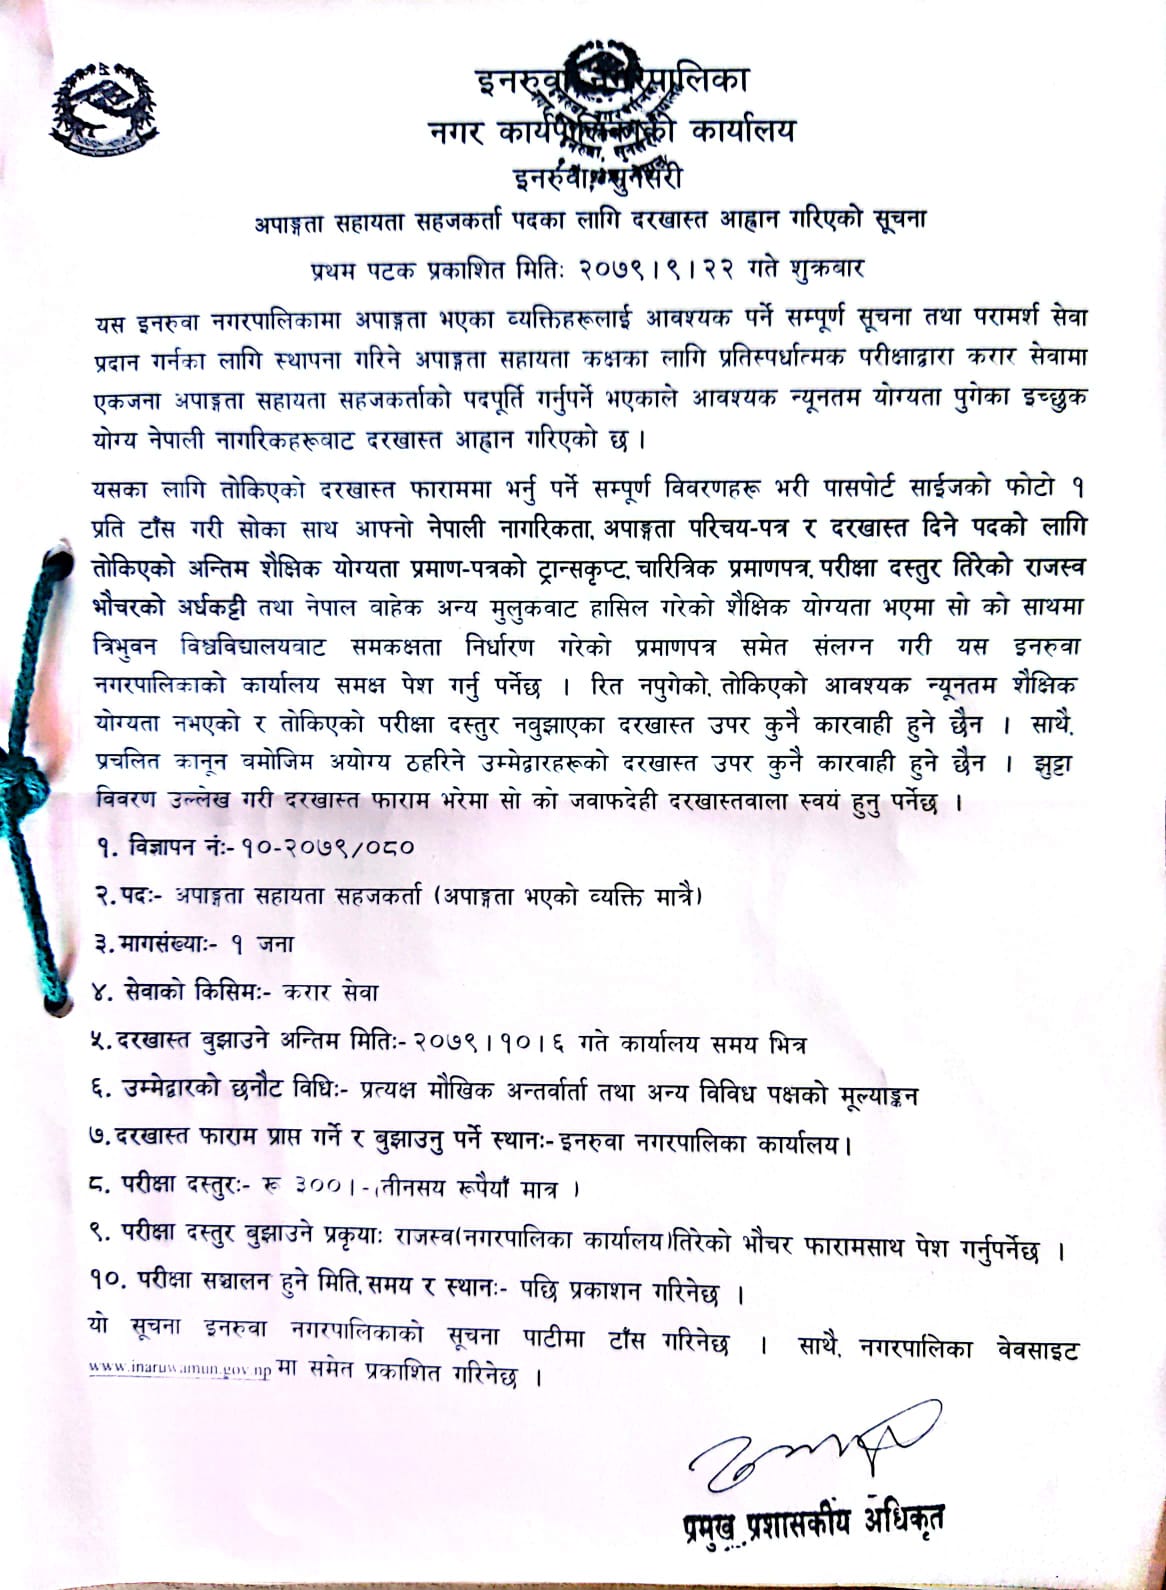 इनरुवा नगरपालिका
नगर कार्यपालिकाको कार्यालय
इनरुवा, सुनसरी
अपाङ्गता सहायता सहजकर्ता पदका लागि दरखास्त आह्वान गरिएको सूचना
प्रथम पटक प्रकाशित मितिः २०७९।९।२२ गते शुक्रबार
यस इनरुवा नगरपालिकामा अपाङ्गता भएका व्यक्तिहरूलाई आवश्यक पर्ने सम्पूर्ण सूचना तथा परामर्श सेवा
प्रदान गर्नका लागि स्थापना गरिने अपाङ्गता सहायता कक्षका लागि प्रतिस्पर्धात्मक परीक्षाद्वारा करार सेवामा
एकजना अपाङ्गता सहायता सहजकर्ताको पदपूर्ति गर्नुपर्ने भएकाले आवश्यक न्यूनतम योग्यता पुगेका इच्छुक
योग्य नेपाली नागरिकहरूबाट दरखास्त आह्वान गरिएको छ ।
यसका लागि तोकिएको दरखास्त फाराममा भर्नु पर्ने सम्पूर्ण विवरणहरू भरी पासपोर्ट साईजको फोटो १
प्रति टाँस गरी सोका साथ आफ्नो नेपाली नागरिकता, अपाङ्गता परिचय-पत्र र दरखास्त दिने पदको लागि
तोकिएको अन्तिम शैक्षिक योग्यता प्रमाण-पत्रको ट्रान्सकृप्ट, चारित्रिक प्रमाणपत्र, परीक्षा दस्तुर तिरेको राजस्व
भौचरको अर्धकट्टी तथा नेपाल वाहेक अन्य मुलुकवाट हासिल गरेको शैक्षिक योग्यता भएमा सो को साथमा
त्रिभुवन विश्वविद्यालयवाट समकक्षता निर्धारण गरेको प्रमाणपत्र समेत संलग्न गरी यस इनरुवा
नगरपालिकाको कार्यालय समक्ष पेश गर्नु पर्नेछ । रित नपुगेको, तोकिएको आवश्यक न्यूनतम शैक्षिक
योग्यता नभएको र तोकिएको परीक्षा दस्तुर नवुझाएका दरखास्त उपर कुनै कारवाही हुने छैन । साथै,
प्रचलित कानून वमोजिम अयोग्य ठहरिने उम्मेद्वारहरूको दरखास्त उपर कुनै कारवाही हुने छैन । झुट्टा
विवरण उल्लेख गरी दरखास्त फाराम भरेमा सो को जवाफदेही दरखास्तवाला स्वयं हुनु पर्नेछ ।
१. विज्ञापन नंः- १०-२०७९/०८०
२. पदः- अपाङ्गता सहायता सहजकर्ता (अपाङ्गता भएको व्यक्ति मात्रै)
३. मागसंख्याः- १ जना
४. सेवाको किसिमः- करार सेवा
५. दरखास्त बुझाउने अन्तिम मितिः- २०७९।१०।६ गते कार्यालय समय भित्र
६. उम्मेद्वारको छनौट विधिः- प्रत्यक्ष मौखिक अन्तर्वार्ता तथा अन्य विविध पक्षको मूल्याङ्कन
७. दरखास्त फाराम प्राप्त गर्ने र बुझाउनु पर्ने स्थानः- इनरुवा नगरपालिका कार्यालय।
८. परीक्षा दस्तुरः- रू ३००।-,तीनसय रूपैयाँ मात्र ।
९. परीक्षा दस्तुर बुझाउने प्रकृयाः राजस्व(नगरपालिका कार्यालय)तिरेको भौचर फारामसाथ पेश गर्नुपर्नेछ ।
१०. परीक्षा सञ्चालन हुने मिति, समय र स्थानः- पछि प्रकाशन गरिनेछ ।
यो सूचना इनरुवा नगरपालिकाको सूचना पाटीमा टाँस गरिनेछ । साथै, नगरपालिका वेवसाइट
www.inaruwamun.gov.np मा समेत प्रकाशित गरिनेछ ।
प्रमुख प्रशासकीय अधिकृत